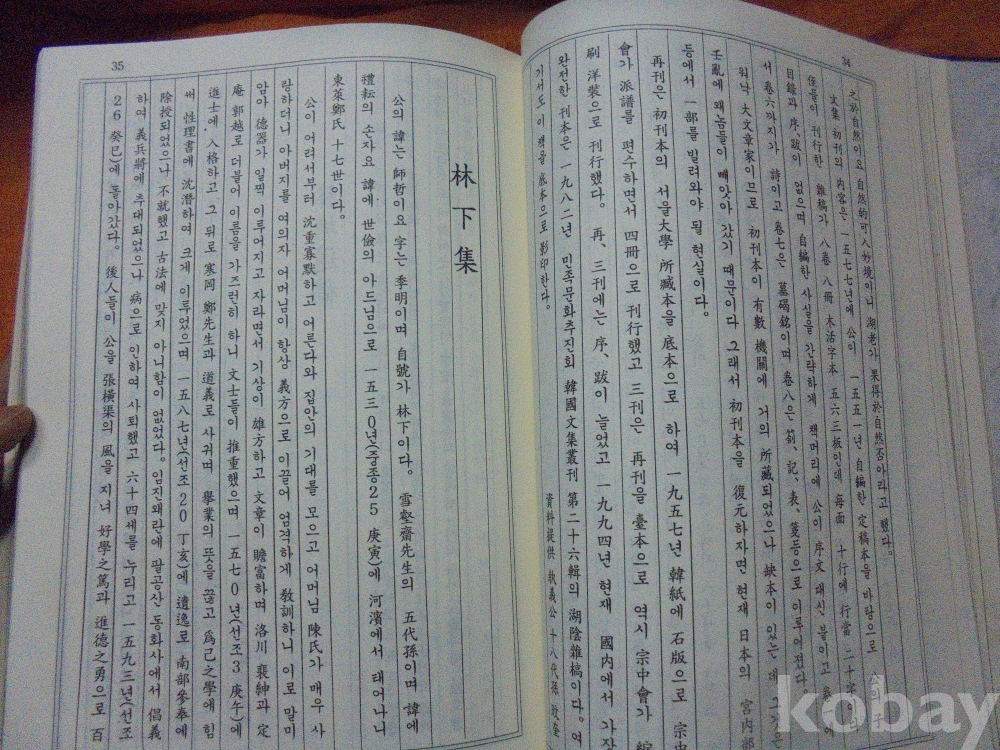 34
之於自然이요 自然的可入妙境이니 湖老가 果得於自然否아라고 했다.
文集 初刊의 內容은 一五七七년에 公이 一五五一년 自編한 定稿本을 바탕으로
僅들이 刊行한 雜稿가 八卷 八冊 木活字本 五·六三板인데 每面 十行에 行當 二十字이나
目錄과 序、跋이 없으며 自編한 사실을 간략하게 책머리에 公이 序文 대신 붙이고 卷一에
서 卷六까지가 詩이고 卷七은 墓碣銘이며 卷八은 箚、記、表、箋등으로 이루어졌다
워낙 大文章家이므로 初刊本이 有數 機關에 거의 所藏되었으나 缺本이 있는 데 그것은
壬亂에 왜놈들이 빼앗아 갔기 때문이다 그래서 初刊本을 復元하자면 現재 日本의 宮内部
등에서 一部를 빌려와야 될 현실이다.
再刊은 初刊本의 서울大學 所臧本을 底本으로 하여 一九五七년 韓紙에 石版으로 宗中
會가 派譜를 편수하면서 四冊으로 刊行했고 三刊은 再刊을 臺本으로 역시 宗中會가
刷 洋裝으로 刊行했다. 再、三刊에는 序、跋이 늘었고 一九九四년 현재 國內에서 가장
완전한 刊本은 一九八二년 민족문화추진회 韓國文集叢刊 第二十六輯의 湖陰雜稿이다. 여
기서도 이 책을 底本으로 影印한다.
資料提供 執義公 十八代孫
35
林下集
公의 諱는 師哲이요 字는 季明이며 自號가 林下이다. 雪壑齋先生의 五代孫이며 諱에
禮耘의 손자요 諱에 世儉의 아드님으로 一五三0년(중종25 庚寅)에 河濱에서 태어나니
東萊鄭氏 十七世이다.
公이 어려서부터 沈重寡默하고 어른다와 집안의 기대를 모으고 어머님 陳氏가 매우 사
랑하더니 아버지를 여의자 어머님이 항상 義方으로 이끌어 엄격하게 敎訓하니 이로 말미
암아 德器가 일찍 이루어지고 자라면서 기상이 雄方하고 文章이 贍富하며 洛川 裵紳과 定
庵 郭越로 더불어 이름을 가즈런히 하니 文士들이 推重했으며 一五七0년(선조3 庚午)에
進士에 入格하고 그 뒤로 寒岡 鄭先生과 道義로 사귀며 擧業의 뜻을 끊고 爲己之學에 힘
써 性理書에 沈潛하여 크게 이루었으며 一五八七년(선조20 丁亥)에 遺逸로 南部參奉에
除授되었으나 不就했고 古法에 맞지 아니함이 없었다. 임진왜란에 팔공산 동화사에서 倡義
하여 義兵將에 추대되었으나 病으로 인하여 사퇴했고 六十四세를 누리고 一五九三년(선조
26 癸巳)에 돌아갔다. 後人들이 公을 張橫渠의 風을 지녀 好學之篤과 進德之勇으로 百
kobay